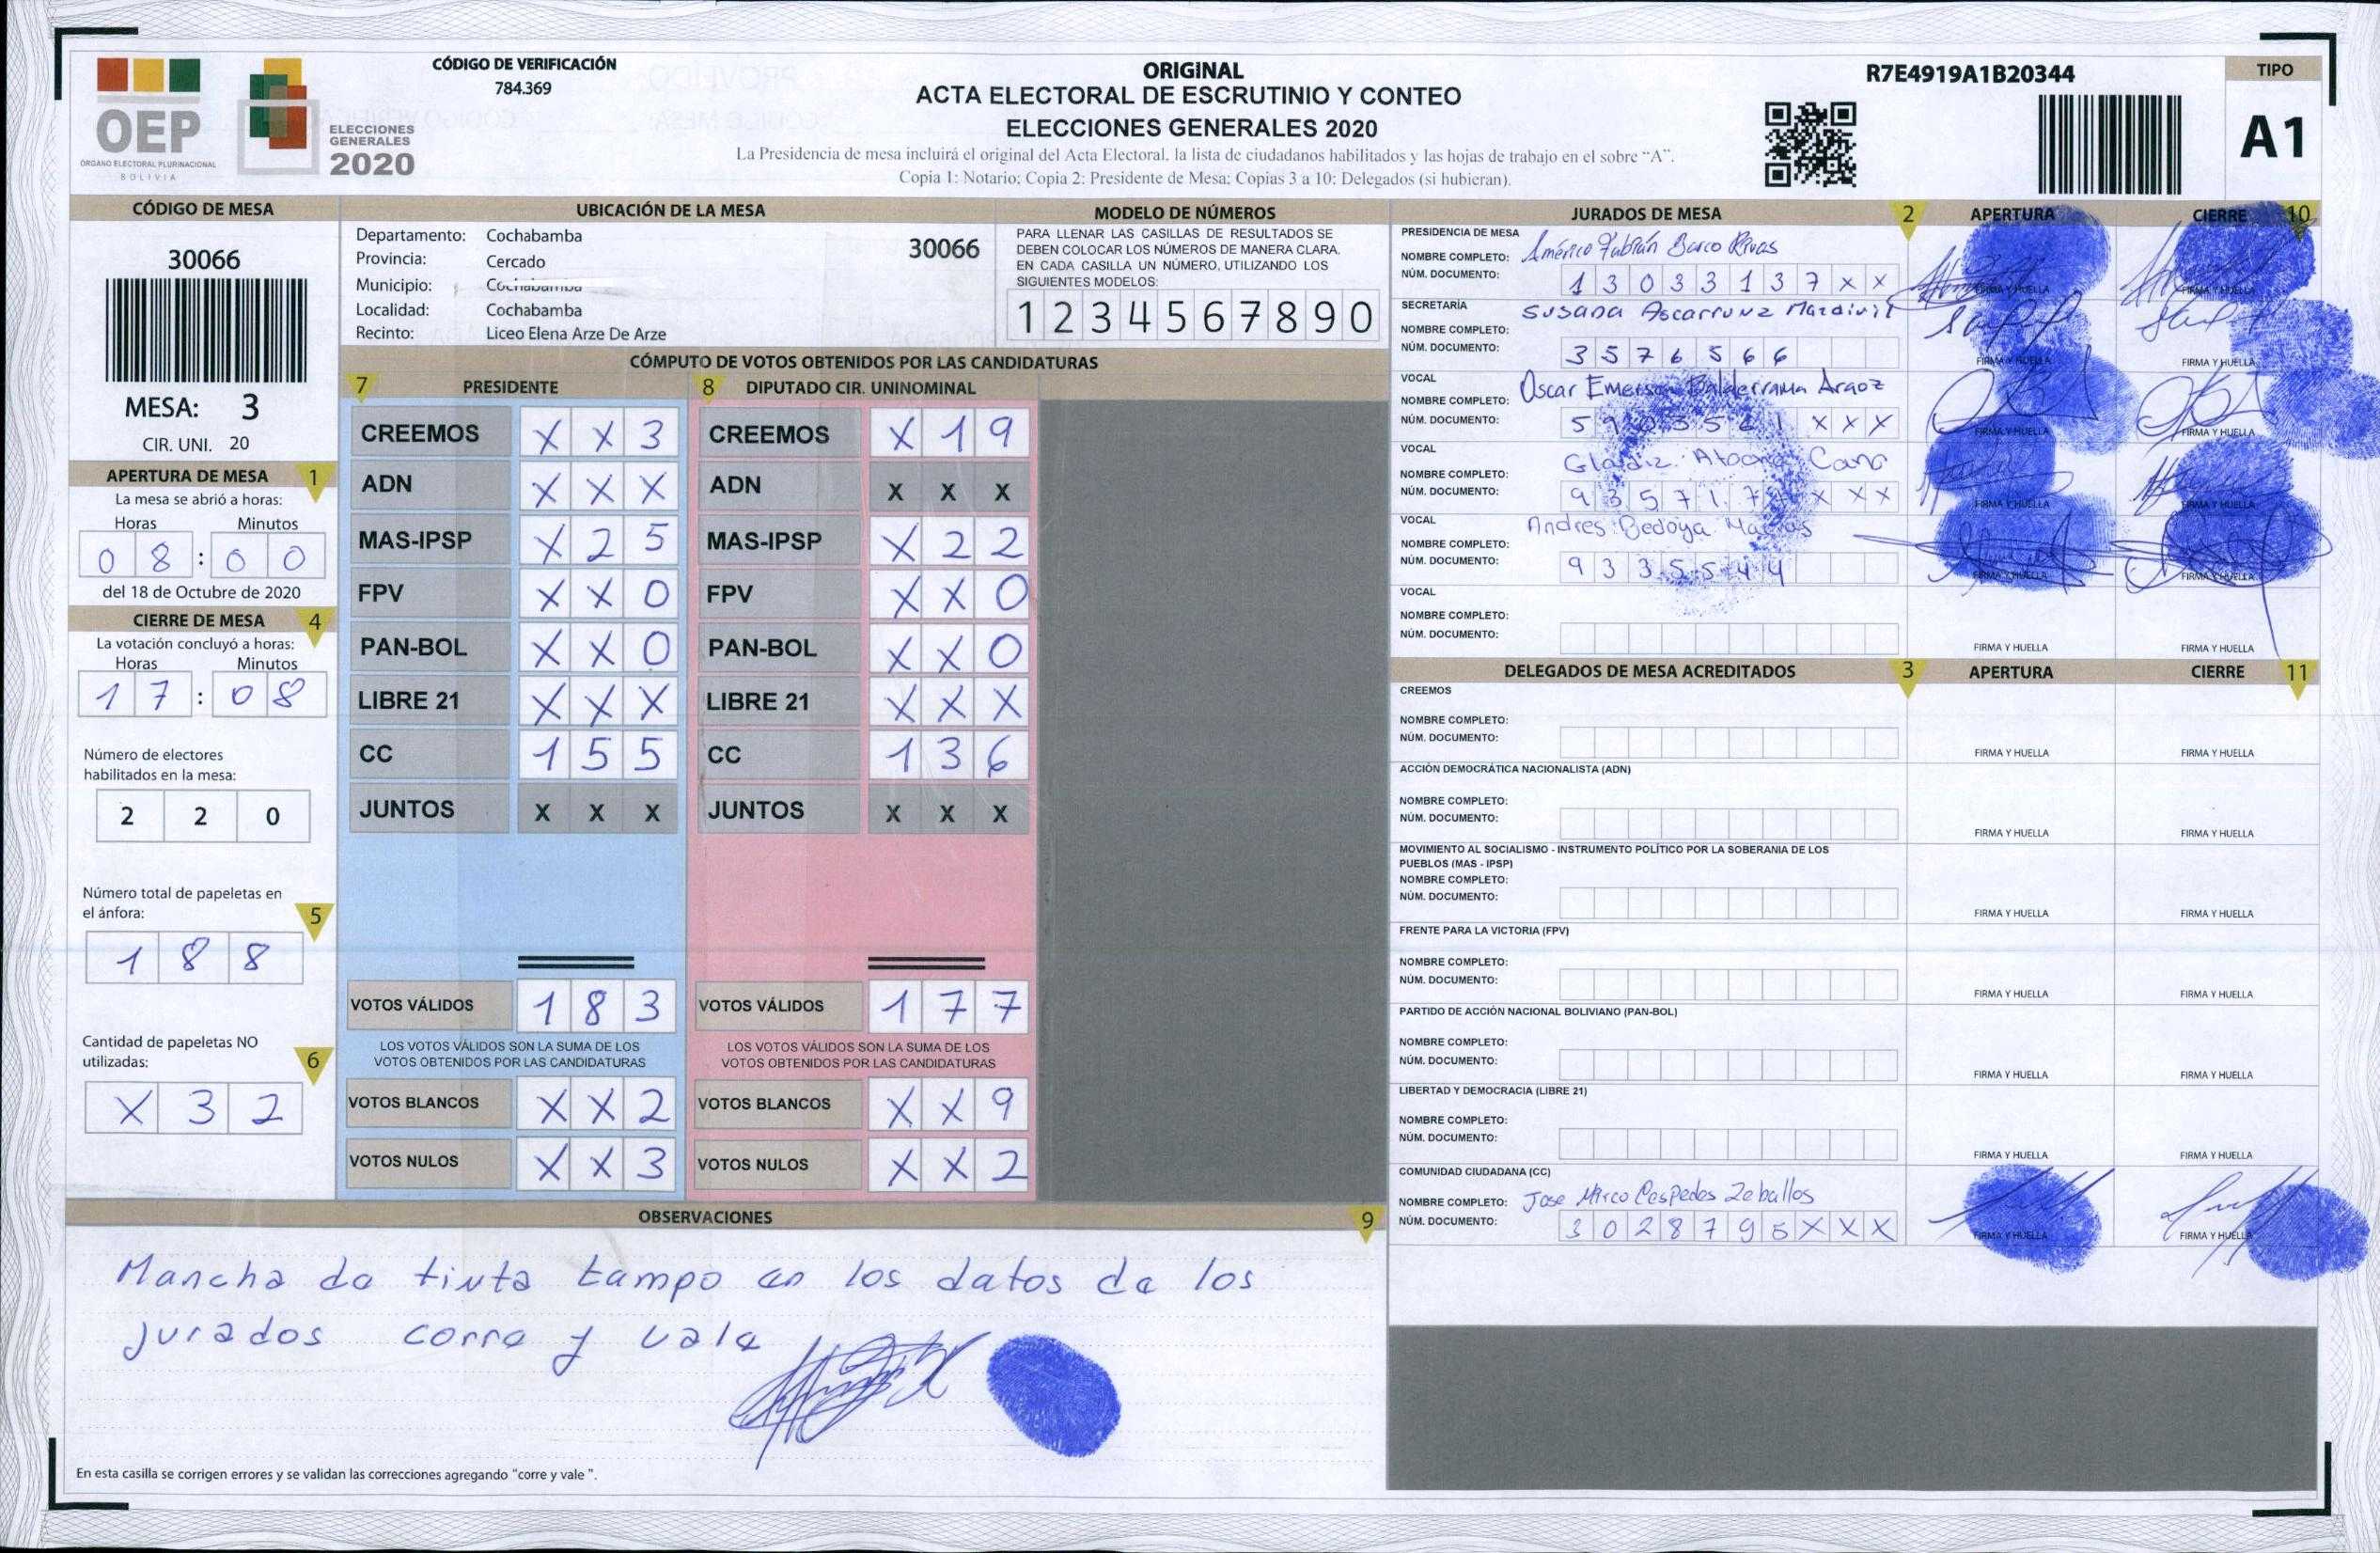 CÓDIGO DE VERIFICACIÓN
784.369
OEP
ÓRGANO ELECTORAL PLURINACIONAL
BOLIVIA
ELECCIONES
GENERALES
2020
ORIGINAL
ACTA ELECTORAL DE ESCRUTINIO Y CONTEO
ELECCIONES GENERALES 2020
La Presidencia de mesa incluirá el original del Acta Electoral, la lista de ciudadanos habilitados y las hojas de trabajo en el sobre “A”.
Copia 1: Notario; Copia 2: Presidente de Mesa; Copias 3 a 10: Delegados (si hubieran).
R7E4919A1B20344
TIPO
A1
CÓDIGO DE MESA
30066
MESA: 3
CIR. UNI. 20
APERTURA DE MESA 1
La mesa se abrió a horas:
Horas Minutos
0 8 : 0 0
del 18 de Octubre de 2020
CIERRE DE MESA 4
La votación concluyó a horas:
Horas Minutos
1 7 : 0 8
Número de electores
habilitados en la mesa:
2 2 0
Número total de papeletas en
el ánfora: 5
1 8 8
Cantidad de papeletas NO
utilizadas: 6
X 3 2
UBICACIÓN DE LA MESA
Departamento: Cochabamba
Provincia: Cercado
Municipio: Cochabamba
Localidad: Cochabamba
Recinto: Liceo Elena Arze De Arze
30066
MODELO DE NÚMEROS
PARA LLENAR LAS CASILLAS DE RESULTADOS SE
DEBEN COLOCAR LOS NÚMEROS DE MANERA CLARA.
EN CADA CASILLA UN NÚMERO, UTILIZANDO LOS
SIGUIENTES MODELOS:
1 2 3 4 5 6 7 8 9 0
CÓMPUTO DE VOTOS OBTENIDOS POR LAS CANDIDATURAS
7 PRESIDENTE 8 DIPUTADO CIR. UNINOMINAL
CREEMOS X X 3 CREEMOS X 1 9
ADN X X X ADN X X X
MAS-IPSP X 2 5 MAS-IPSP X 2 2
FPV X X 0 FPV X X 0
PAN-BOL X X 0 PAN-BOL X X 0
LIBRE 21 X X X LIBRE 21 X X X
CC 1 5 5 CC 1 3 6
JUNTOS X X X JUNTOS X X X
VOTOS VÁLIDOS 1 8 3 VOTOS VÁLIDOS 1 7 7
LOS VOTOS VÁLIDOS SON LA SUMA DE LOS LOS VOTOS VÁLIDOS SON LA SUMA DE LOS
VOTOS OBTENIDOS POR LAS CANDIDATURAS VOTOS OBTENIDOS POR LAS CANDIDATURAS
VOTOS BLANCOS X X 2 VOTOS BLANCOS X X 9
VOTOS NULOS X X 3 VOTOS NULOS X X 2
OBSERVACIONES 9
Mancha de tinta tampo en los datos de los
jurados corre y vale
En esta casilla se corrigen errores y se validan las correcciones agregando “corre y vale ”.
JURADOS DE MESA 2 APERTURA CIERRE 10
PRESIDENCIA DE MESA
NOMBRE COMPLETO: Américo Fabián Barco Rivas
NÚM. DOCUMENTO: 1 3 0 3 3 1 3 7 X X
FIRMA Y HUELLA FIRMA Y HUELLA
SECRETARÍA
NOMBRE COMPLETO: Susana Ascarrunz
NÚM. DOCUMENTO: 3 5 7 6 5 6 6
FIRMA Y HUELLA FIRMA Y HUELLA
VOCAL
NOMBRE COMPLETO: Oscar Emerson Balderrama Araoz
NÚM. DOCUMENTO: X X X
FIRMA Y HUELLA FIRMA Y HUELLA
VOCAL
NOMBRE COMPLETO:
NÚM. DOCUMENTO: 9 3 5 7 1 7 X X X
FIRMA Y HUELLA FIRMA Y HUELLA
VOCAL
NOMBRE COMPLETO: Andres Bedoya
NÚM. DOCUMENTO: 9 3 3 5 5 4 4
FIRMA Y HUELLA FIRMA Y HUELLA
VOCAL
NOMBRE COMPLETO:
NÚM. DOCUMENTO:
FIRMA Y HUELLA FIRMA Y HUELLA
DELEGADOS DE MESA ACREDITADOS 3 APERTURA CIERRE 11
CREEMOS
NOMBRE COMPLETO:
NÚM. DOCUMENTO:
FIRMA Y HUELLA FIRMA Y HUELLA
ACCIÓN DEMOCRÁTICA NACIONALISTA (ADN)
NOMBRE COMPLETO:
NÚM. DOCUMENTO:
FIRMA Y HUELLA FIRMA Y HUELLA
MOVIMIENTO AL SOCIALISMO - INSTRUMENTO POLÍTICO POR LA SOBERANIA DE LOS
PUEBLOS (MAS - IPSP)
NOMBRE COMPLETO:
NÚM. DOCUMENTO:
FIRMA Y HUELLA FIRMA Y HUELLA
FRENTE PARA LA VICTORIA (FPV)
NOMBRE COMPLETO:
NÚM. DOCUMENTO:
FIRMA Y HUELLA FIRMA Y HUELLA
PARTIDO DE ACCIÓN NACIONAL BOLIVIANO (PAN-BOL)
NOMBRE COMPLETO:
NÚM. DOCUMENTO:
FIRMA Y HUELLA FIRMA Y HUELLA
LIBERTAD Y DEMOCRACIA (LIBRE 21)
NOMBRE COMPLETO:
NÚM. DOCUMENTO:
FIRMA Y HUELLA FIRMA Y HUELLA
COMUNIDAD CIUDADANA (CC)
NOMBRE COMPLETO: Jose Mirco Cespedes Zeballos
NÚM. DOCUMENTO: 3 0 2 8 7 9 5 X X X
FIRMA Y HUELLA FIRMA Y HUELLA